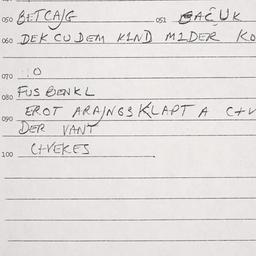 050 BETCAJG 051 BAČUK
060 DEK CU DEM KIND MIDER KO
070 :0
080 FUS BENKL
090 EROT ARAJNGSKLAPT A C+V
DER VANT
100 C+VEKES